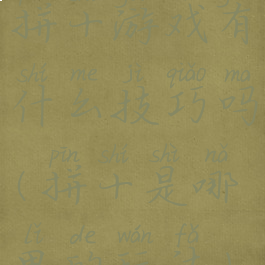 拼十游戏有
shí me jì qiǎo ma
什么技巧吗
pīn shí shì nǎ
(拼十是哪
lǐ de wán fǎ